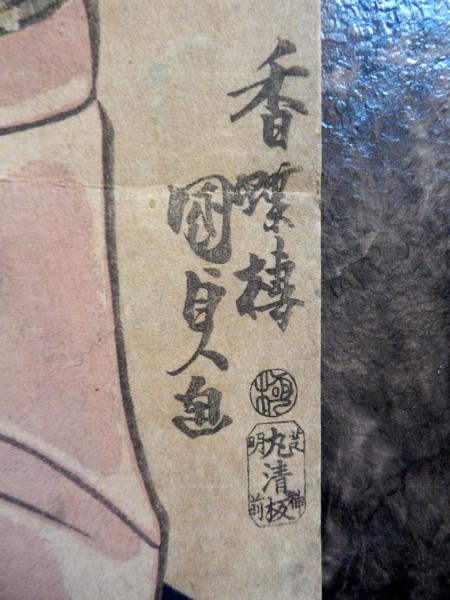 香蝶楼
國貞画
極
芝神
丸清板
明前